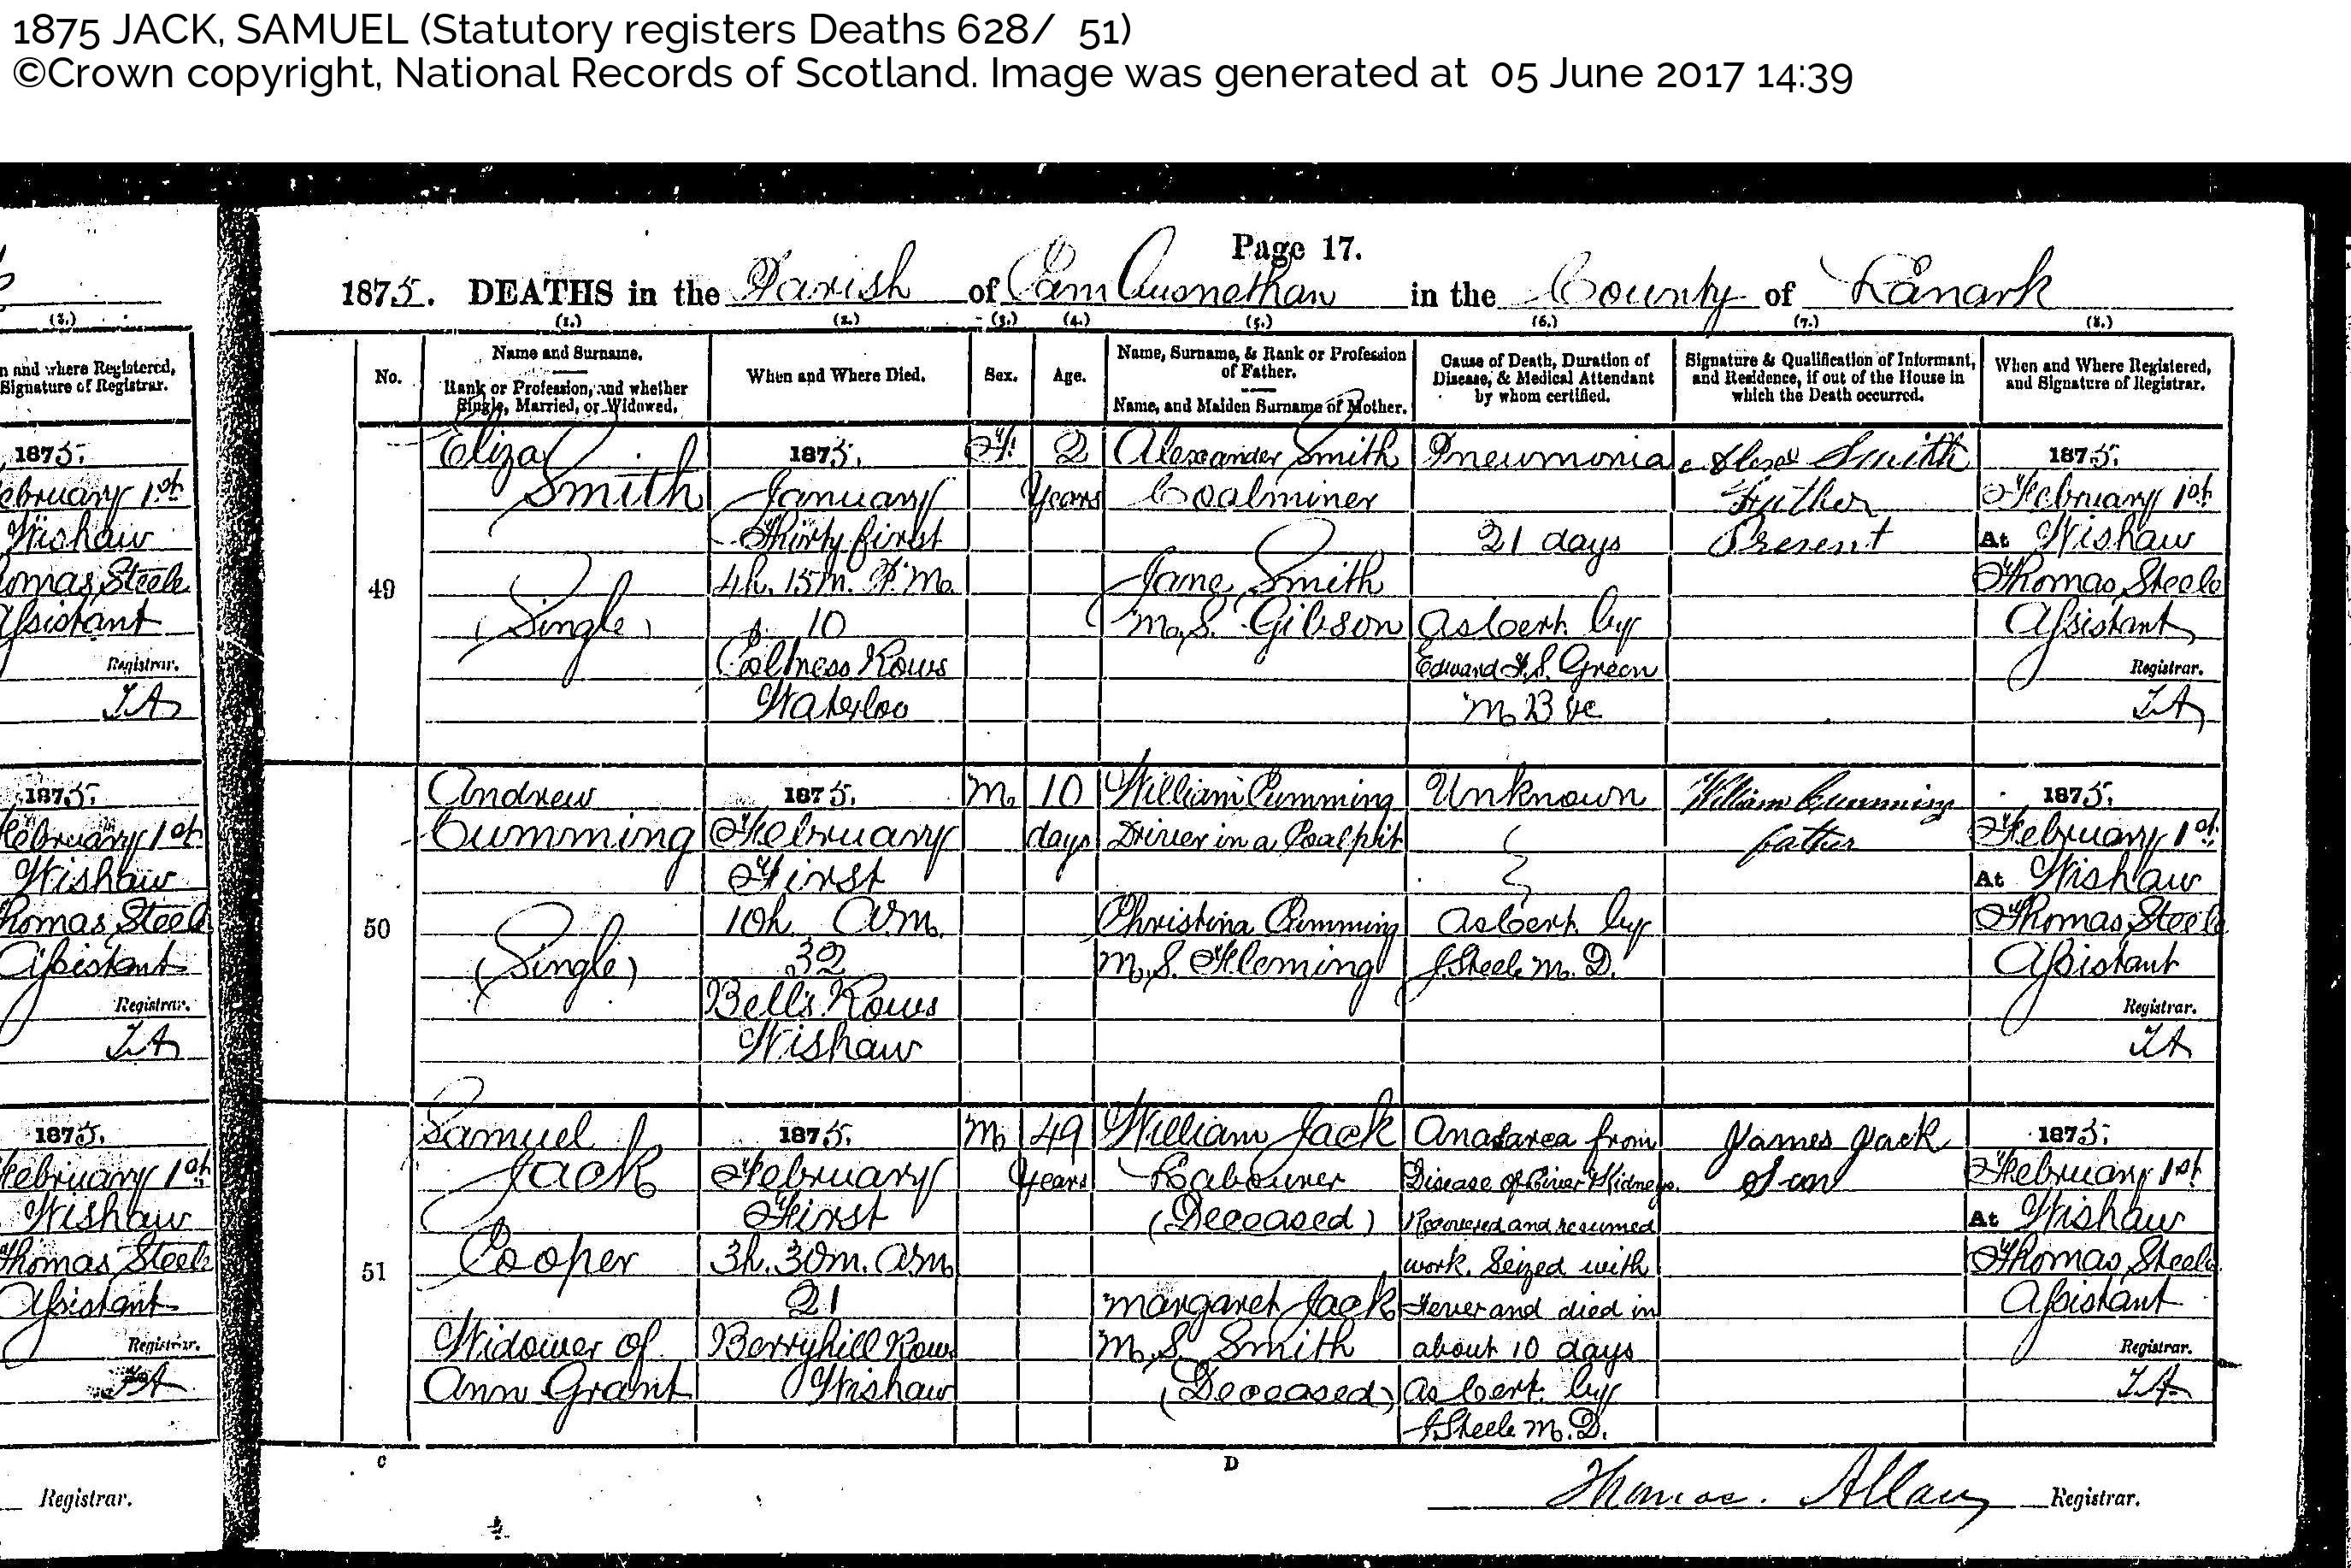 1875 JACK, SAMUEL (Statutory registers Deaths 628/ 51)
©Crown copyright, National Records of Scotland. Image was generated at 05 June 2017 14:39
Page 17.
1875. DEATHS in the Parish of Cambusnethan in the County of Lanark
(3.)
(1.) (2.) (3.) (4.) (5.) (6.) (7.) (8.)
n and where Registered,
Signature of Registrar.
No.
Name and Surname.
Rank or Profession, and whether
Single, Married, or Widowed.
When and Where Died.
Sex.
Age.
Name, Surname, & Rank or Profession
of Father.
Name, and Maiden Surname of Mother.
Cause of Death, Duration of
Disease, & Medical Attendant
by whom certified.
Signature & Qualification of Informant,
and Residence, if out of the House in
which the Death occurred.
When and Where Registered,
and Signature of Registrar.
1875.
ebruary 1st
Wishaw
homas Steele
Assistant
Registrar.
TA
49
Eliza
Smith
(Single)
1875.
January
Thirty first
4h. 15m. P.M.
10
Coltness Rows
Waterloo
F.
2
Years
Alexander Smith
Coalminer
Jane Smith
M.S. Gibson
Pneumonia
21 days
as Cert. by
Edward F.S. Green
M.B &c
Alexr Smith
Father
Present
1875.
February 1st
At Wishaw
Thomas Steele
Assistant
Registrar.
TA
1875.
February 1st
Wishaw
Thomas Steele
Assistant
Registrar.
TA
50
Andrew
Cumming
(Single)
1875.
February
First
10h. A.M.
32
Bell's Rows
Wishaw
M.
10
days
William Cumming
Driver in a Coalpit
Christina Cumming
M.S. Fleming
Unknown
as Cert. by
J. Steele M.D.
William Cumming
father
1875.
February 1st
At Wishaw
Thomas Steele
Assistant
Registrar.
TA
1875.
February 1st
Wishaw
Thomas Steele
Assistant
Registrar.
TA
51
Samuel
Jack
Cooper
Widower of
Ann Grant
1875.
February
First
3h. 30m. A.M.
21
Berryhill Rows
Wishaw
M.
49
Years
William Jack
Labourer
(Deceased)
Margaret Jack
M.S. Smith
(Deceased)
Anasarca from
Disease of Liver & Kidneys.
Recovered and resumed
work. Seized with
Fever and died in
about 10 days
as Cert. by
J. Steele M.D.
James Jack
Son
1875.
February 1st
At Wishaw
Thomas Steele
Assistant
Registrar.
TA
C
D
Registrar.
Thomas Allan Registrar.